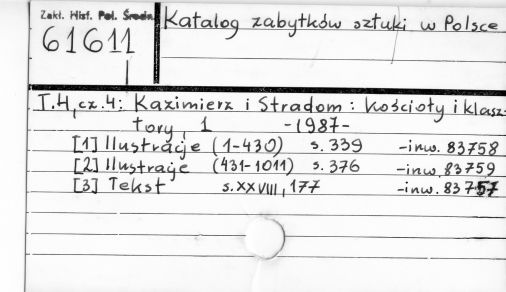 Zakł. Hist. Pol. Średn.
61611
Katalog zabytków sztuki w Polsce
T.4, cz.4: Kazimierz i Stradom: kościoły i klasz-
tory, 1 -1987-
[1] Ilustracje (1-430) s. 339 -inw. 83758
[2] Ilustracje (431-1011) s. 376 -inw. 83759
[3] Tekst s. XXVIII, 177 -inw. 83757